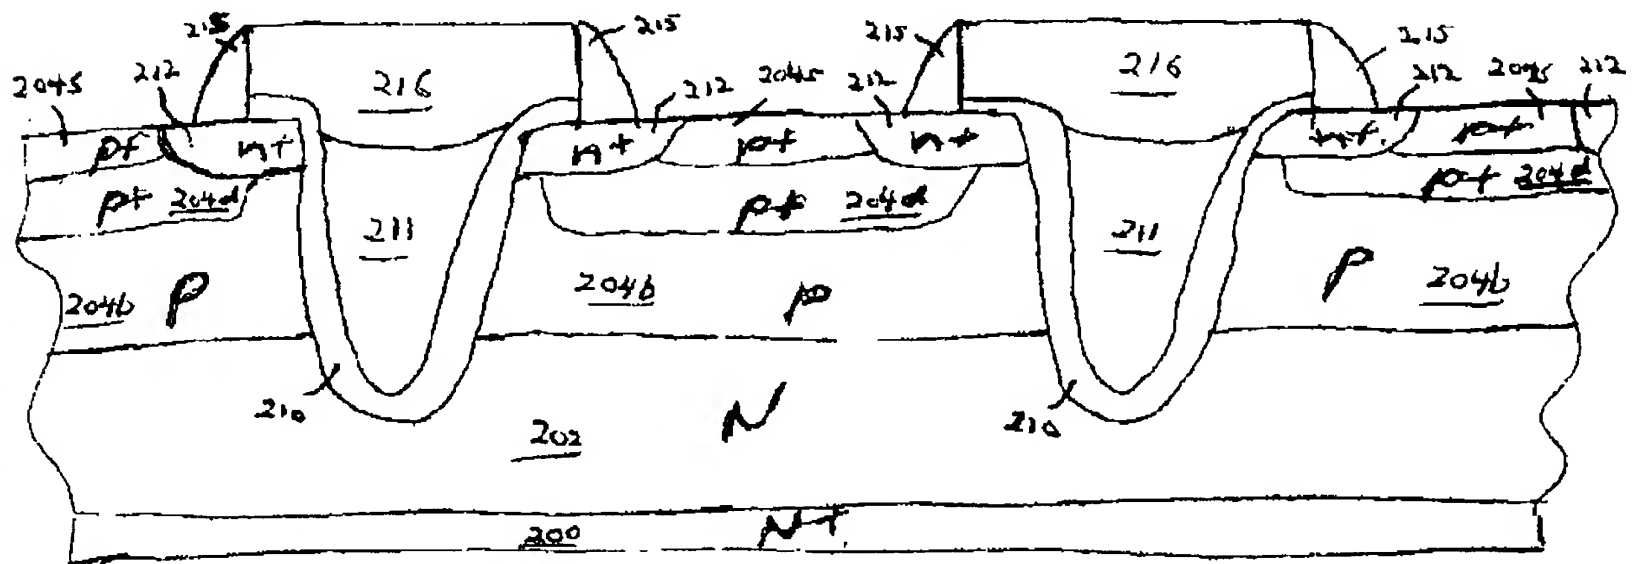 215 215 215 215
2045 212 216 212 2045 212 216 212 2045 212
p+ n+ n+ p+ n+ n+ p+
p+ 204d p+ 204d p+ 204d
211 211
204b P 204b P P 204b
210 210
202 N
200 N+